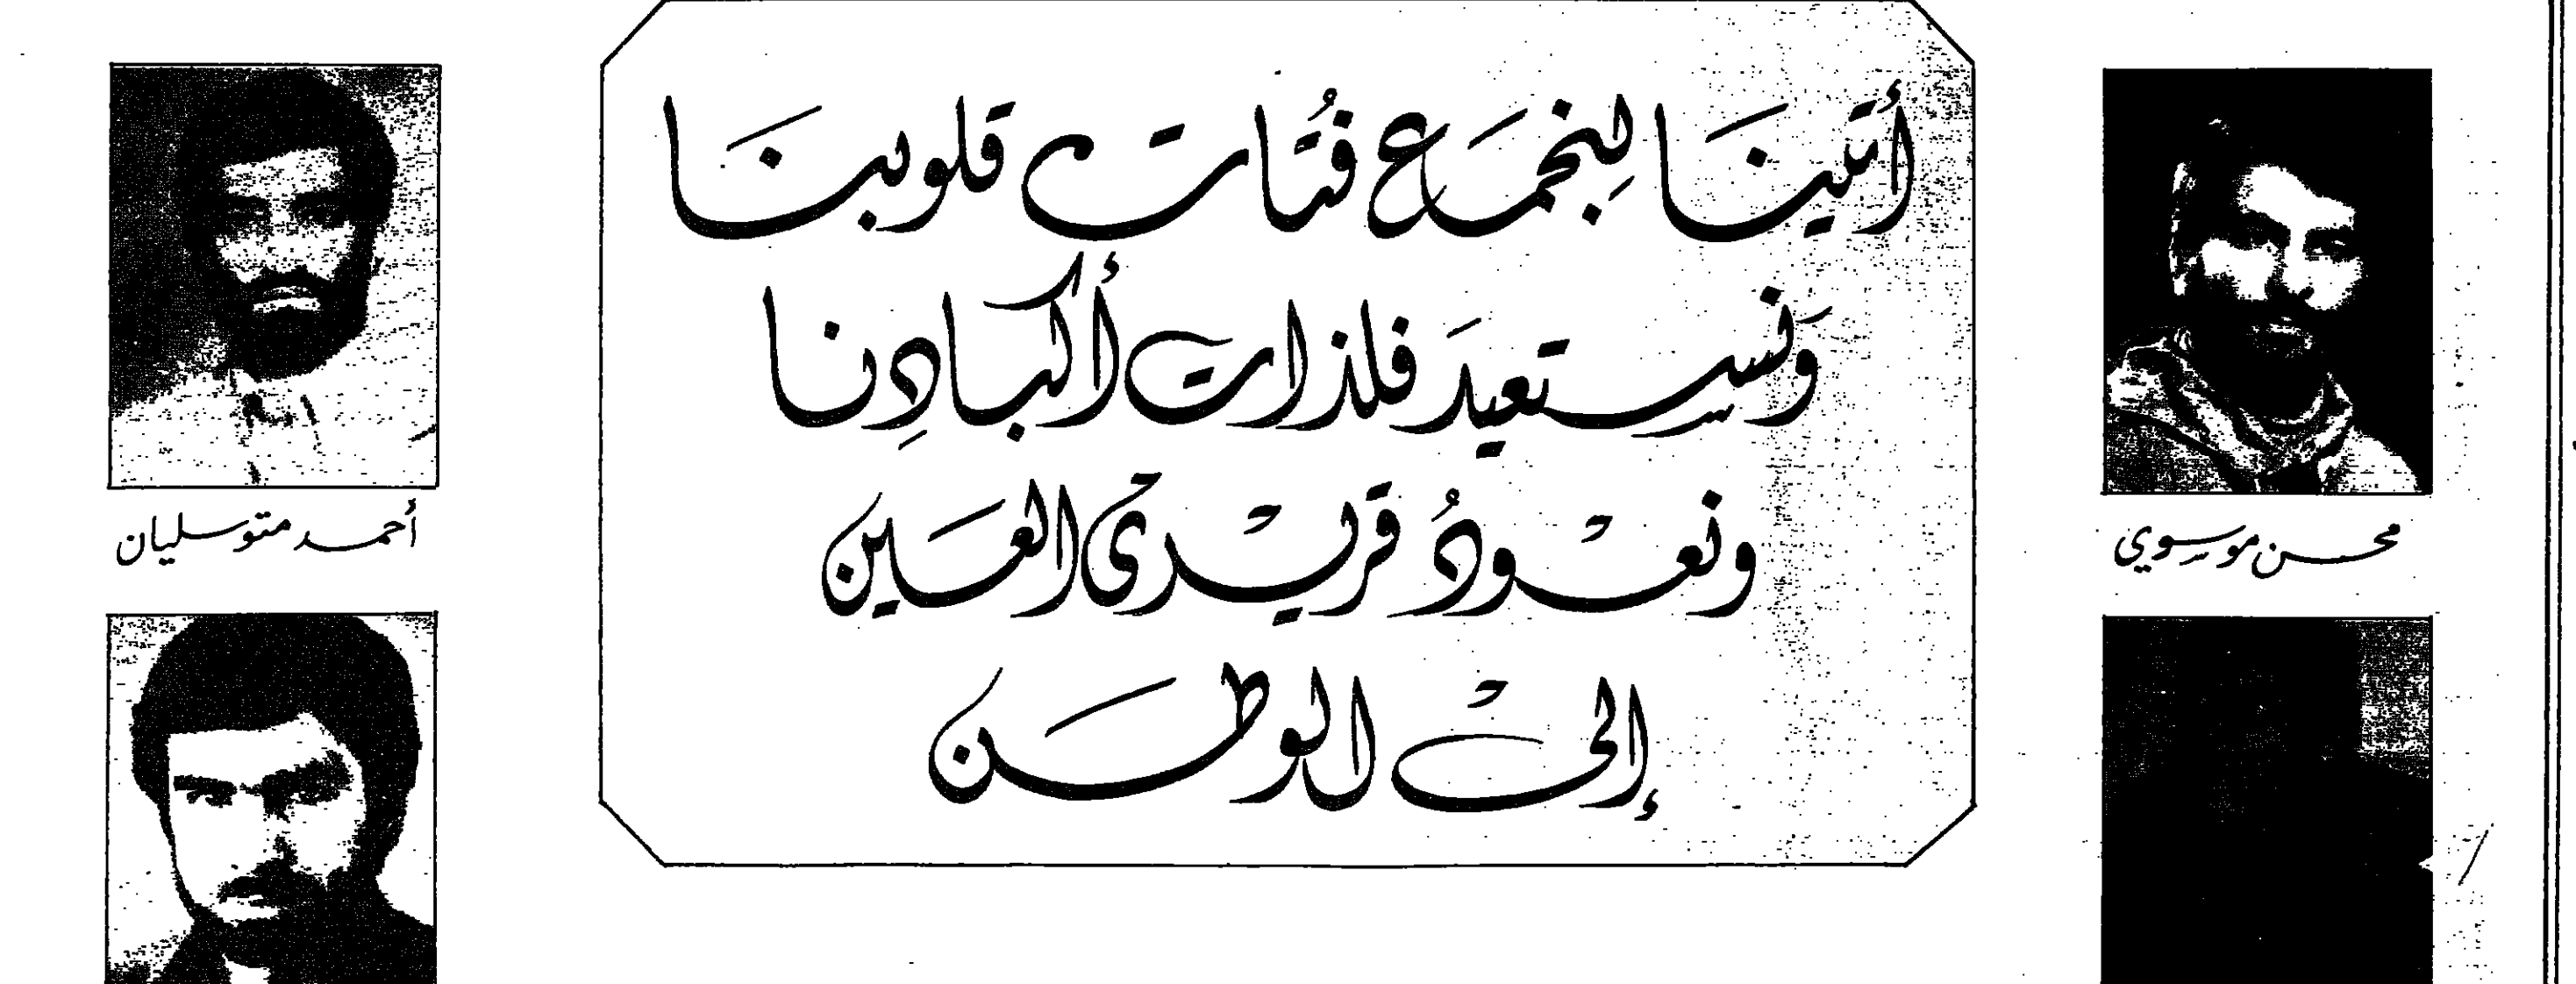 أتينَا لِنجمَع فتُات قلوبنَا
وَنستعيدَ فلذات أكبادِنا
ونعْودُ قريْرى العَين
إلىْ الوطَن
محسن موسوي
أحمد متوسليان